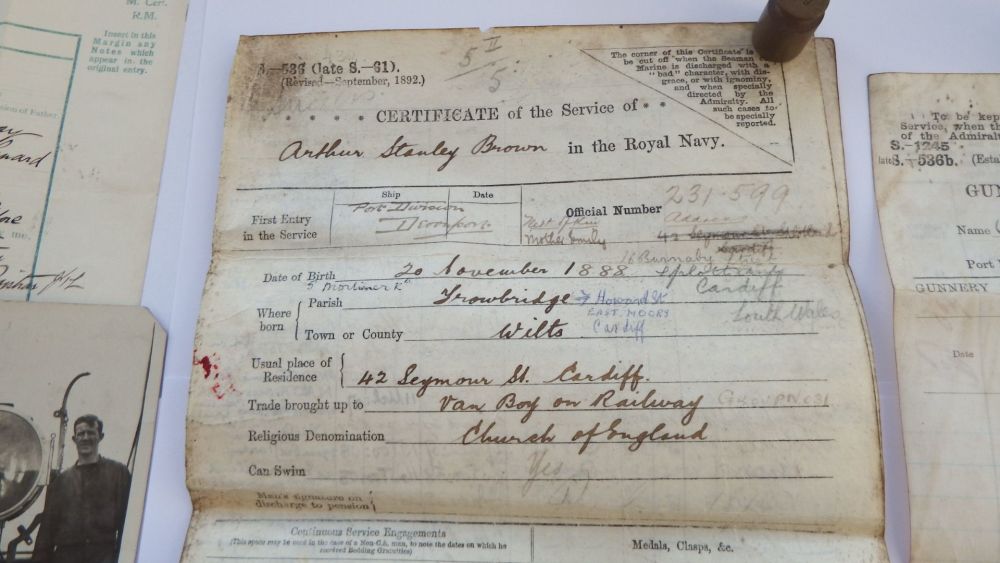 M. Cert.
R.M.
Insert in this
Margin any
Notes which
appear in the
original entry.
5 II
5
A.—536 (late S.—61).
(Revised—September, 1892.)
The corner of this Certificate is to
be cut off when the Seaman or
Marine is discharged with a
"bad" character, with dis-
grace, or with ignominy,
and when specially
directed by the
Admiralty. All
such cases to
be specially
reported.
CERTIFICATE of the Service of
Arthur Stanley Brown in the Royal Navy.
Ship Date
First Entry
in the Service
Port Division
Devonport
Official Number
231·599
Next of Kin
Mother Emily
Address
42 Seymour St
Cardiff
16 Burnaby Street
Splott
Cardiff
South Wales
Date of Birth 20 November 1888
5 Mortimer Rd
Where born
Parish Trowbridge
7 Howard St
EAST MOORS
Cardiff
Town or County Wilts
Usual place of Residence 42 Seymour St. Cardiff.
Trade brought up to Van Boy on Railway
Religious Denomination Church of England
Can Swim Yes
Man's signature on
discharge to pension
Continuous Service Engagements
(This space may be used in the case of a Non-C.S. man, to note the dates on which he
received Bedding Gratuities)
Medals, Clasps, &c.
To be kep
Service, when th
of the Admiralt
S.—1245
late S.—536b. (Esta
GU
Name
Port
GUNNERY
Date